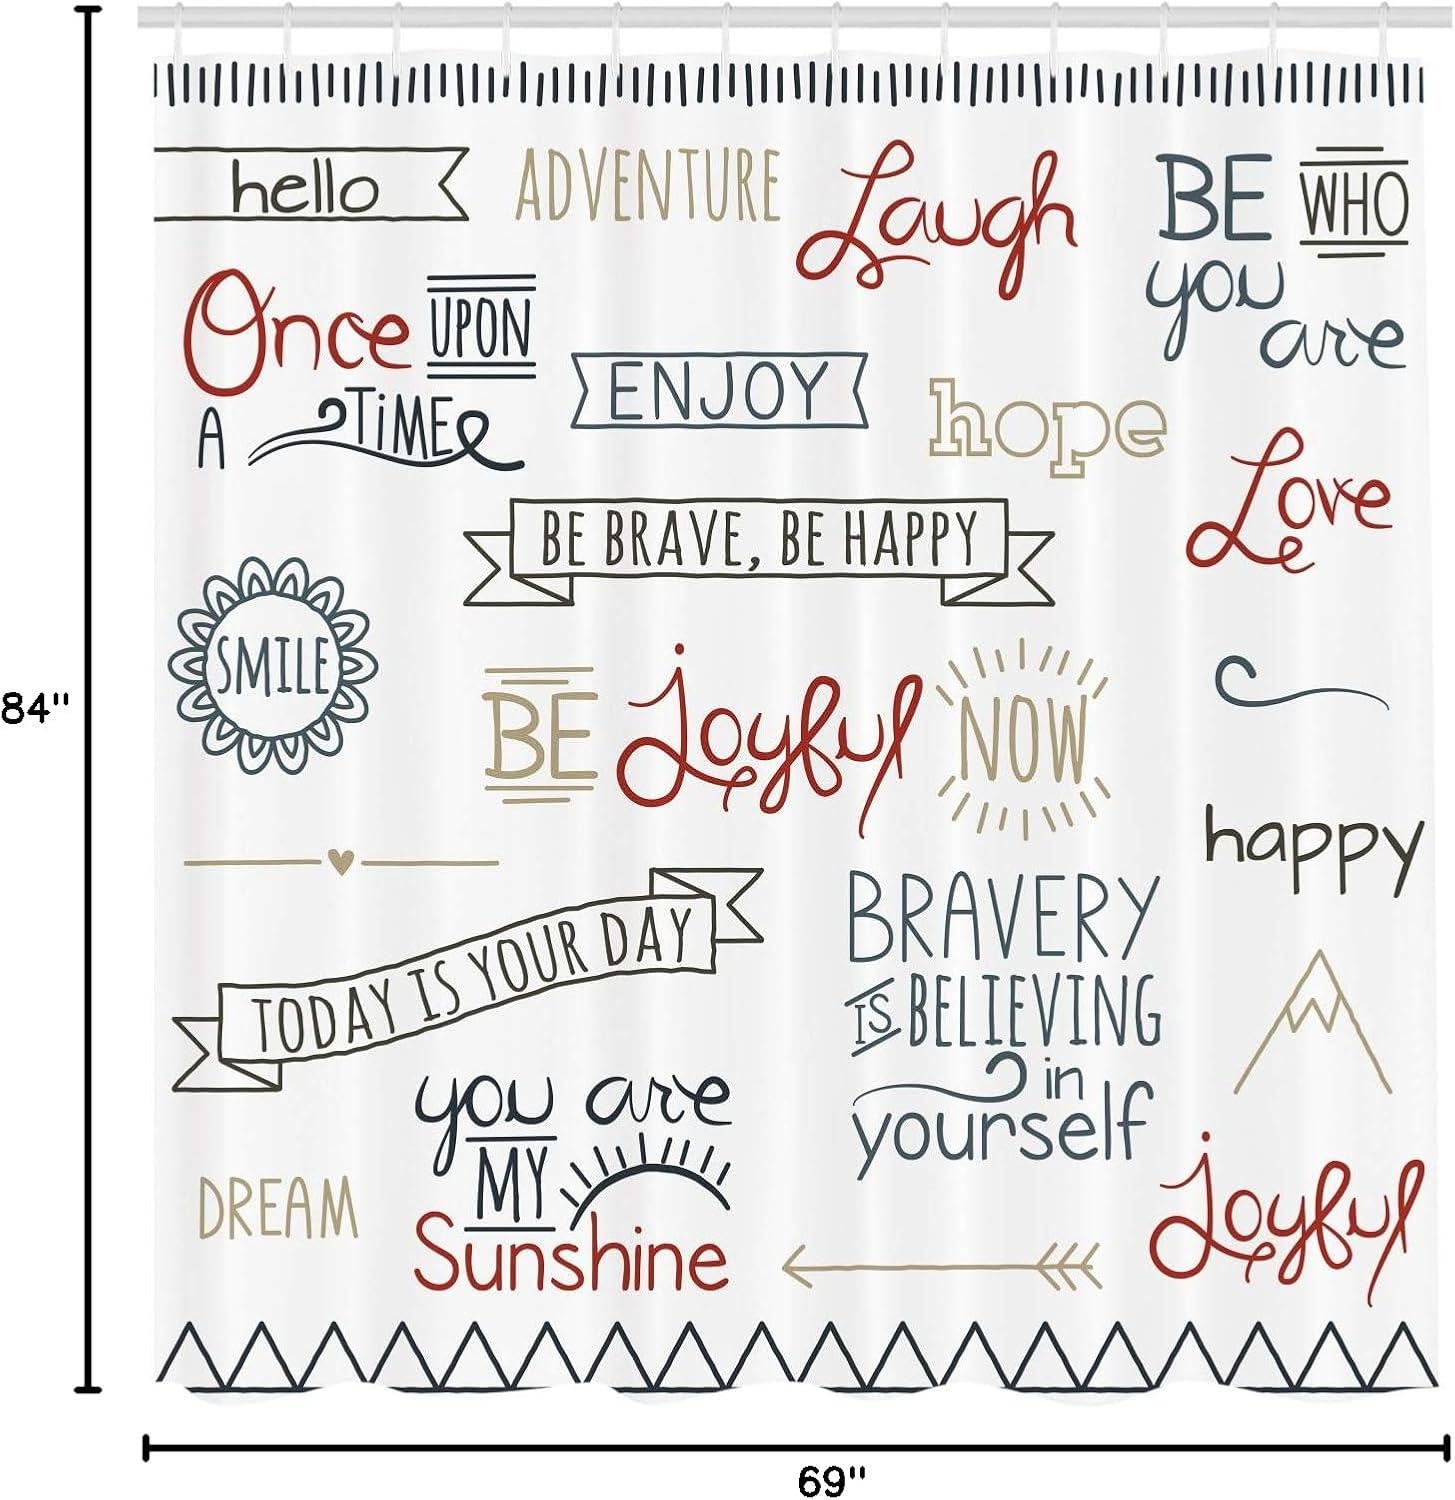 hello
ADVENTURE
Laugh
BE WHO
you
are
Once UPON
A TiME
ENJOY
hope
Love
BE BRAVE, BE HAPPY
SMILE
BE joyful NOW
happy
TODAY IS YOUR DAY
BRAVERY
IS BELIEVING
in
yourself
you are
MY
Sunshine
DREAM
joyful
84"
69"